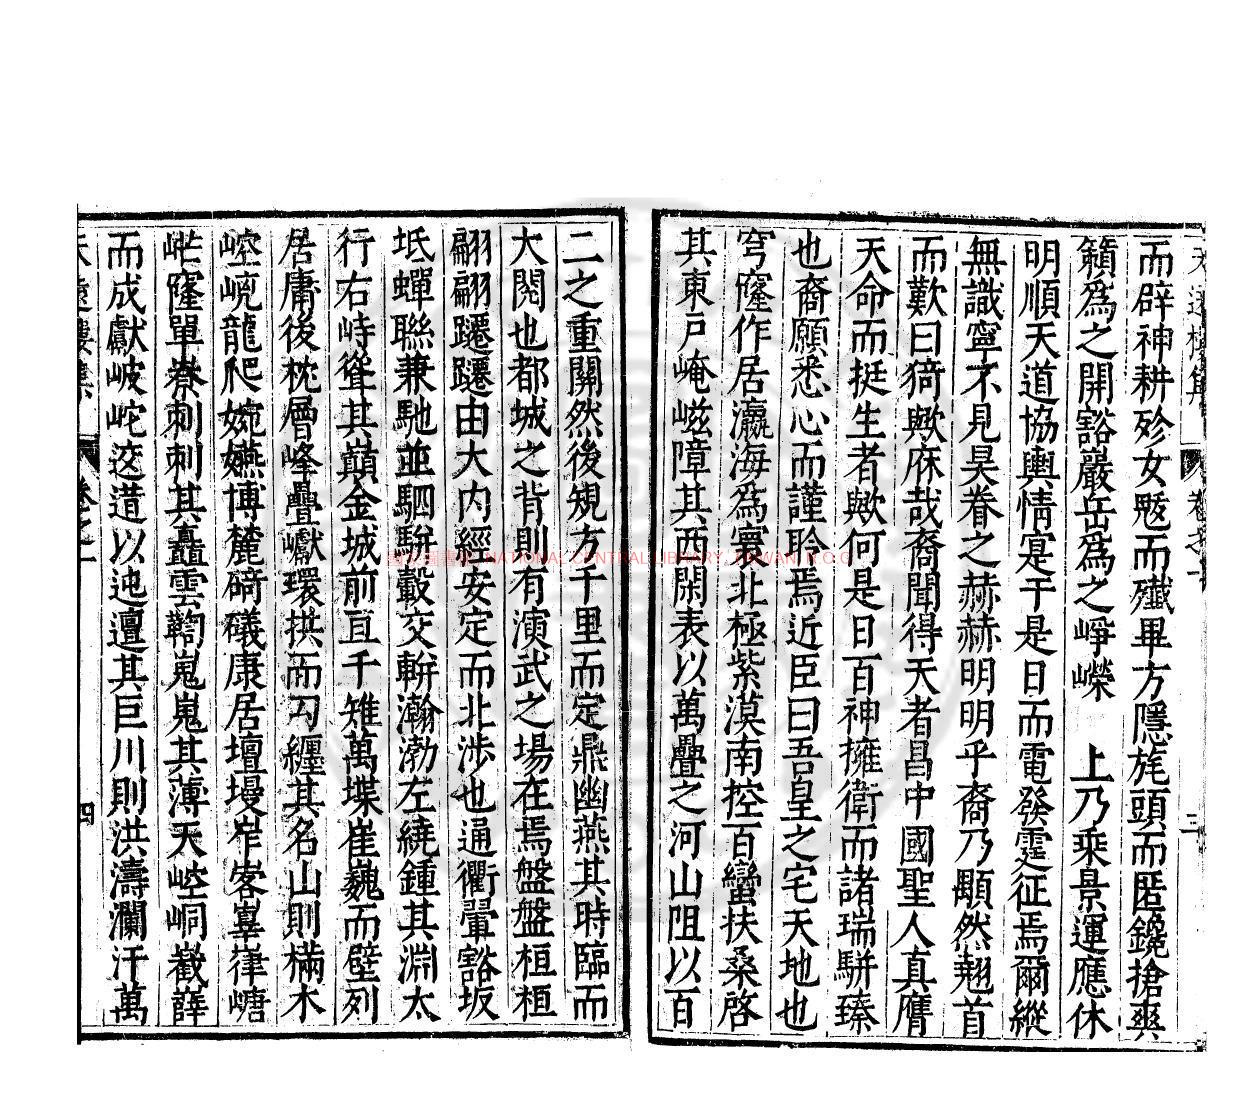 而辟神耕殄女魃而殲畢方隱旄頭而匿鑱搶爽
籟為之開豁巖岳為之崢嶸 上乃乘景運應休
明順天道協輿情寔于是日而電發霆征焉爾縱
無識寧不見昊眷之赫赫明明乎裔乃顒然翹首
而歎曰猗歟庥哉裔聞得天者昌中國聖人真膺
天命而挺生者歟何是日百神擁衛而諸瑞駢臻
也裔願悉心而謹聆焉近臣曰吾皇之宅天地也
穹窿作居瀛海為寰北極紫漠南控百蠻扶桑啓
其東戶崦嵫障其西閑表以萬疊之河山阻以百
二之重關然後規方千里而定鼎幽燕其時臨而
大閱也都城之背則有演武之場在焉盤盤桓桓
翩翩躚躚由大內經安定而北涉也通衢翬豁坂
坻蟬聯兼馳並駟駢轂交軿瀚渤左繞鍾其淵太
行右峙聳其巔金城前亘千雉萬堞崔巍而壁列
居庸後枕層峰疊巘環拱而勾纏其名山則樠木
崆峴龍爬婉嬿博麓碕礒康居壇墁岝峉嵂崒嵣
𡵉窿單桊刺刺其矗雲嵬嵬其薄天崆峒嶻嶭
而成獻岥岮逶迤以迍邅其巨川則洪濤瀾汗萬
天遠樓集 卷之一 三
天遠樓集 卷之一 四
國家圖書館 NATIONAL CENTRAL LIBRARY, TAIWAN R.O.C